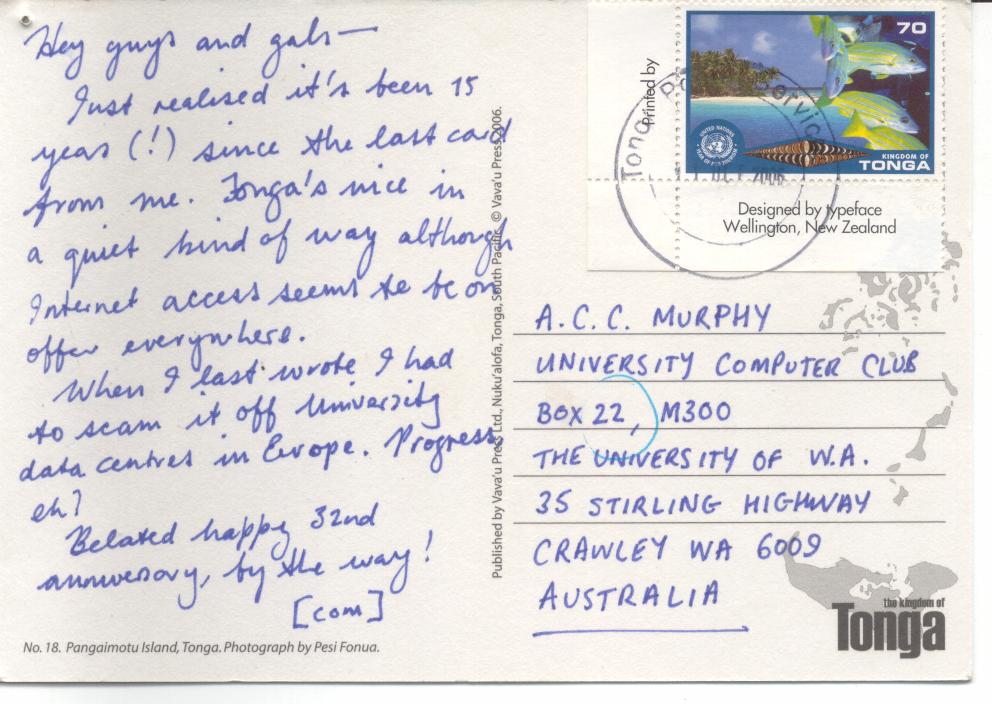 Hey guys and gals—
Just realised it's been 15
years (!) since the last card
from me. Tonga's nice in
a quiet kind of way although
Internet access seems to be on
offer everywhere.
When I last wrote I had
to scam it off University
data centres in Europe. Progress,
eh?
Belated happy 32nd
anniversary, by the way!
[com]
No. 18. Pangaimotu Island, Tonga. Photograph by Pesi Fonua.
Published by Vava'u Press Ltd., Nuku'alofa, Tonga, South Pacific. © Vava'u Press 2006.
Printed by
70
UNITED NATIONS
KINGDOM OF
TONGA
Tonga Postal Service
2006
Designed by typeface
Wellington, New Zealand
A.C.C. MURPHY
UNIVERSITY COMPUTER CLUB
BOX 22, M300
THE UNIVERSITY OF W.A.
35 STIRLING HIGHWAY
CRAWLEY WA 6009
AUSTRALIA
the kingdom of
Tonga